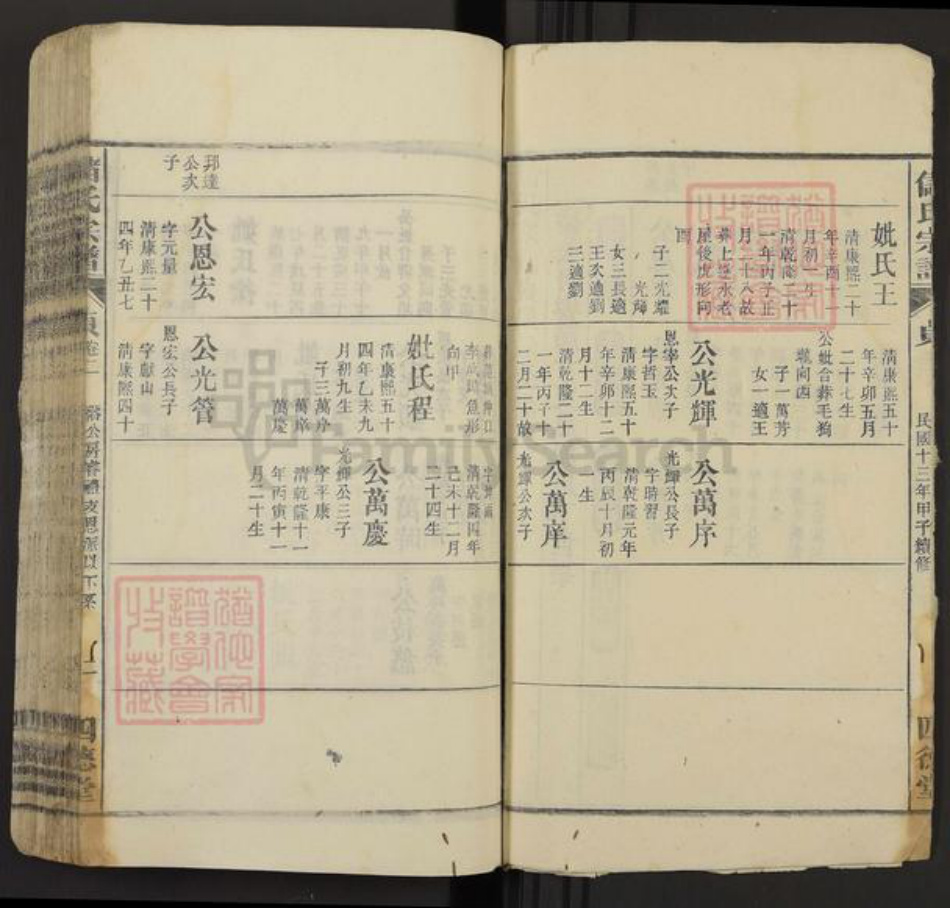 民國十三年甲子續修
四德堂
妣氏王
清康熙二十
年辛酉十一
月初一生
清乾隆二十
一年丙子正
月二十八故
葬上
屋後虎形向
酉
子二光耀
光輝
女三長適
王次適劉
三適劉
清康熙五十
年辛卯五月
二十七生
公妣合葬毛狗
壠向酉
子一萬芳
女一適王
公光輝
恩宰公次子
字哲玉
清康熙五十
年辛卯十二
月十二生
清乾隆二十
一年丙子十
二月二十故
公萬序
光輝公長子
字瑞習
清乾隆元年
丙辰十月初
一生
公萬庠
光輝公次子
魚形
向甲
妣氏程
清康熙五十
四年乙未九
月初九生
子三萬序
萬庠
萬慶
清乾隆四年
己未十二月
二十四生
公萬慶
光輝公三子
字平康
清乾隆十一
年丙寅十一
月二十生
邦達
公次
子
公恩宏
字元量
清康熙二十
四年乙丑七
公光管
恩宏公長子
字獻山
清康熙四十
四德堂
FamilySearch